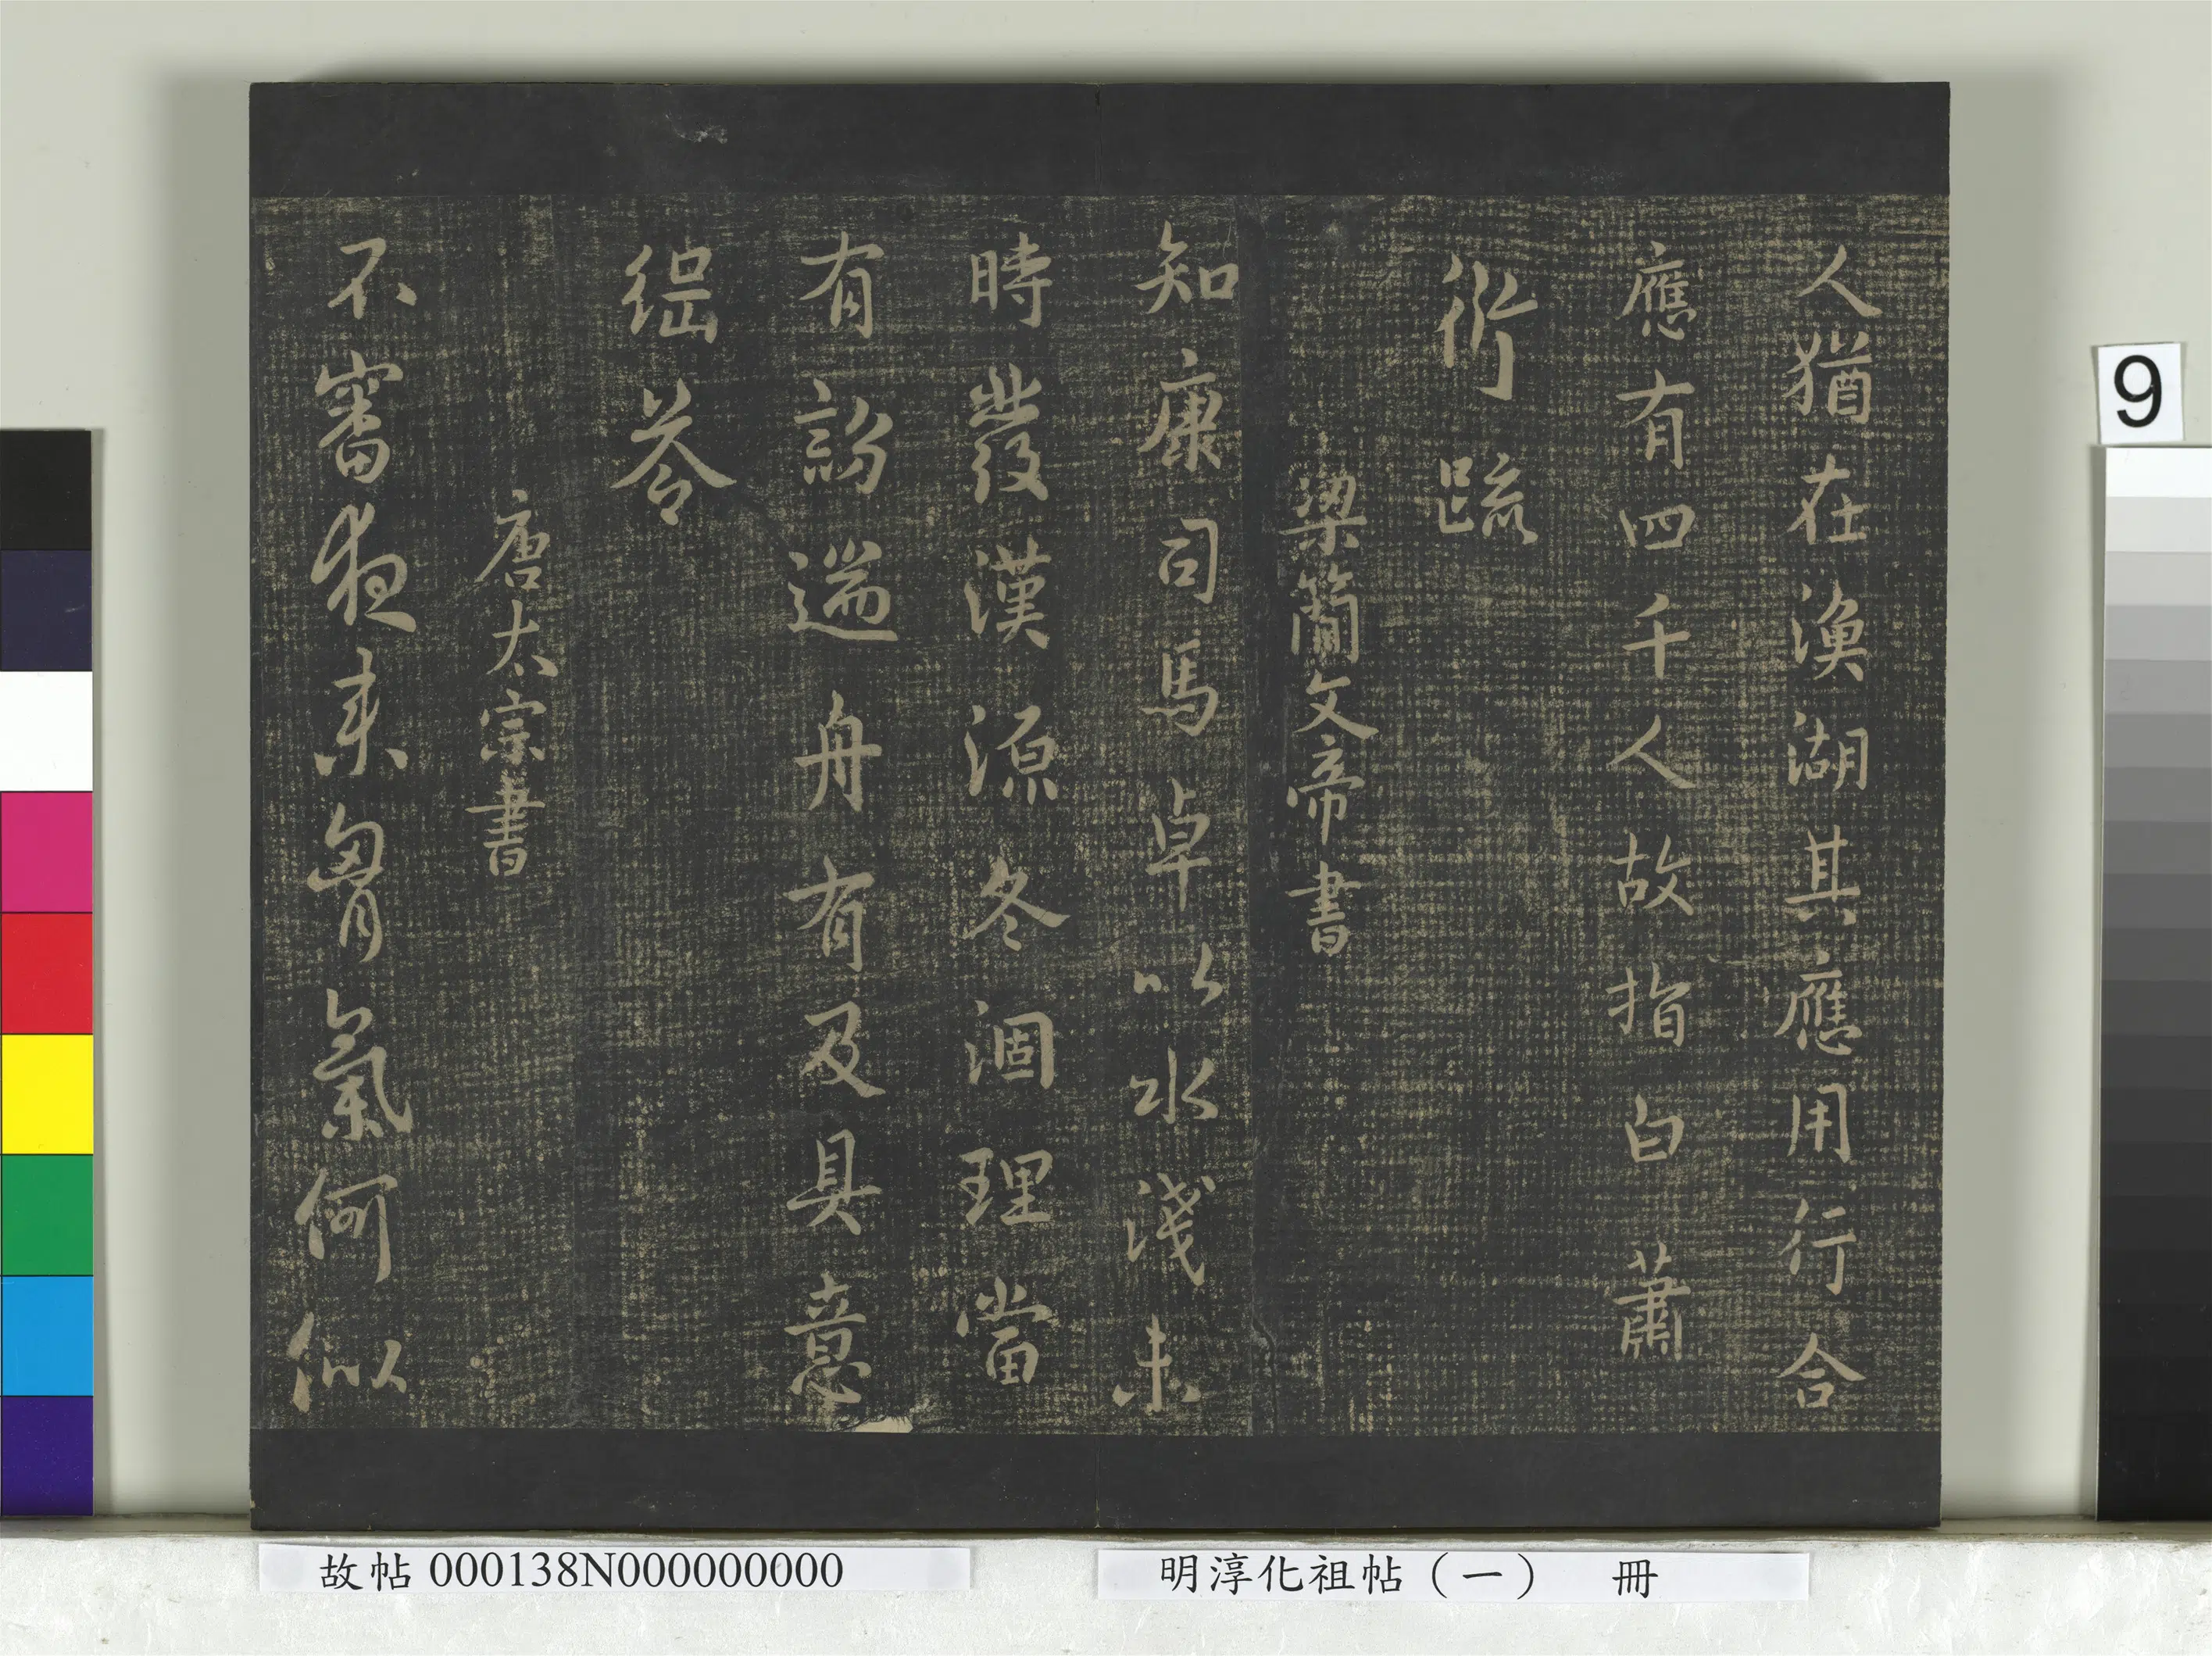 人猶在漁湖其應用行合
應有四千人故指白蕭
衍疏
梁簡文帝書
知康司馬卓以水淺未
時發漢源冬涸理當
有詔遄舟有及具意
綱荅
唐太宗書
不審夜来胷氣何似
9
故帖 000138N000000000
明淳化祖帖（一） 冊